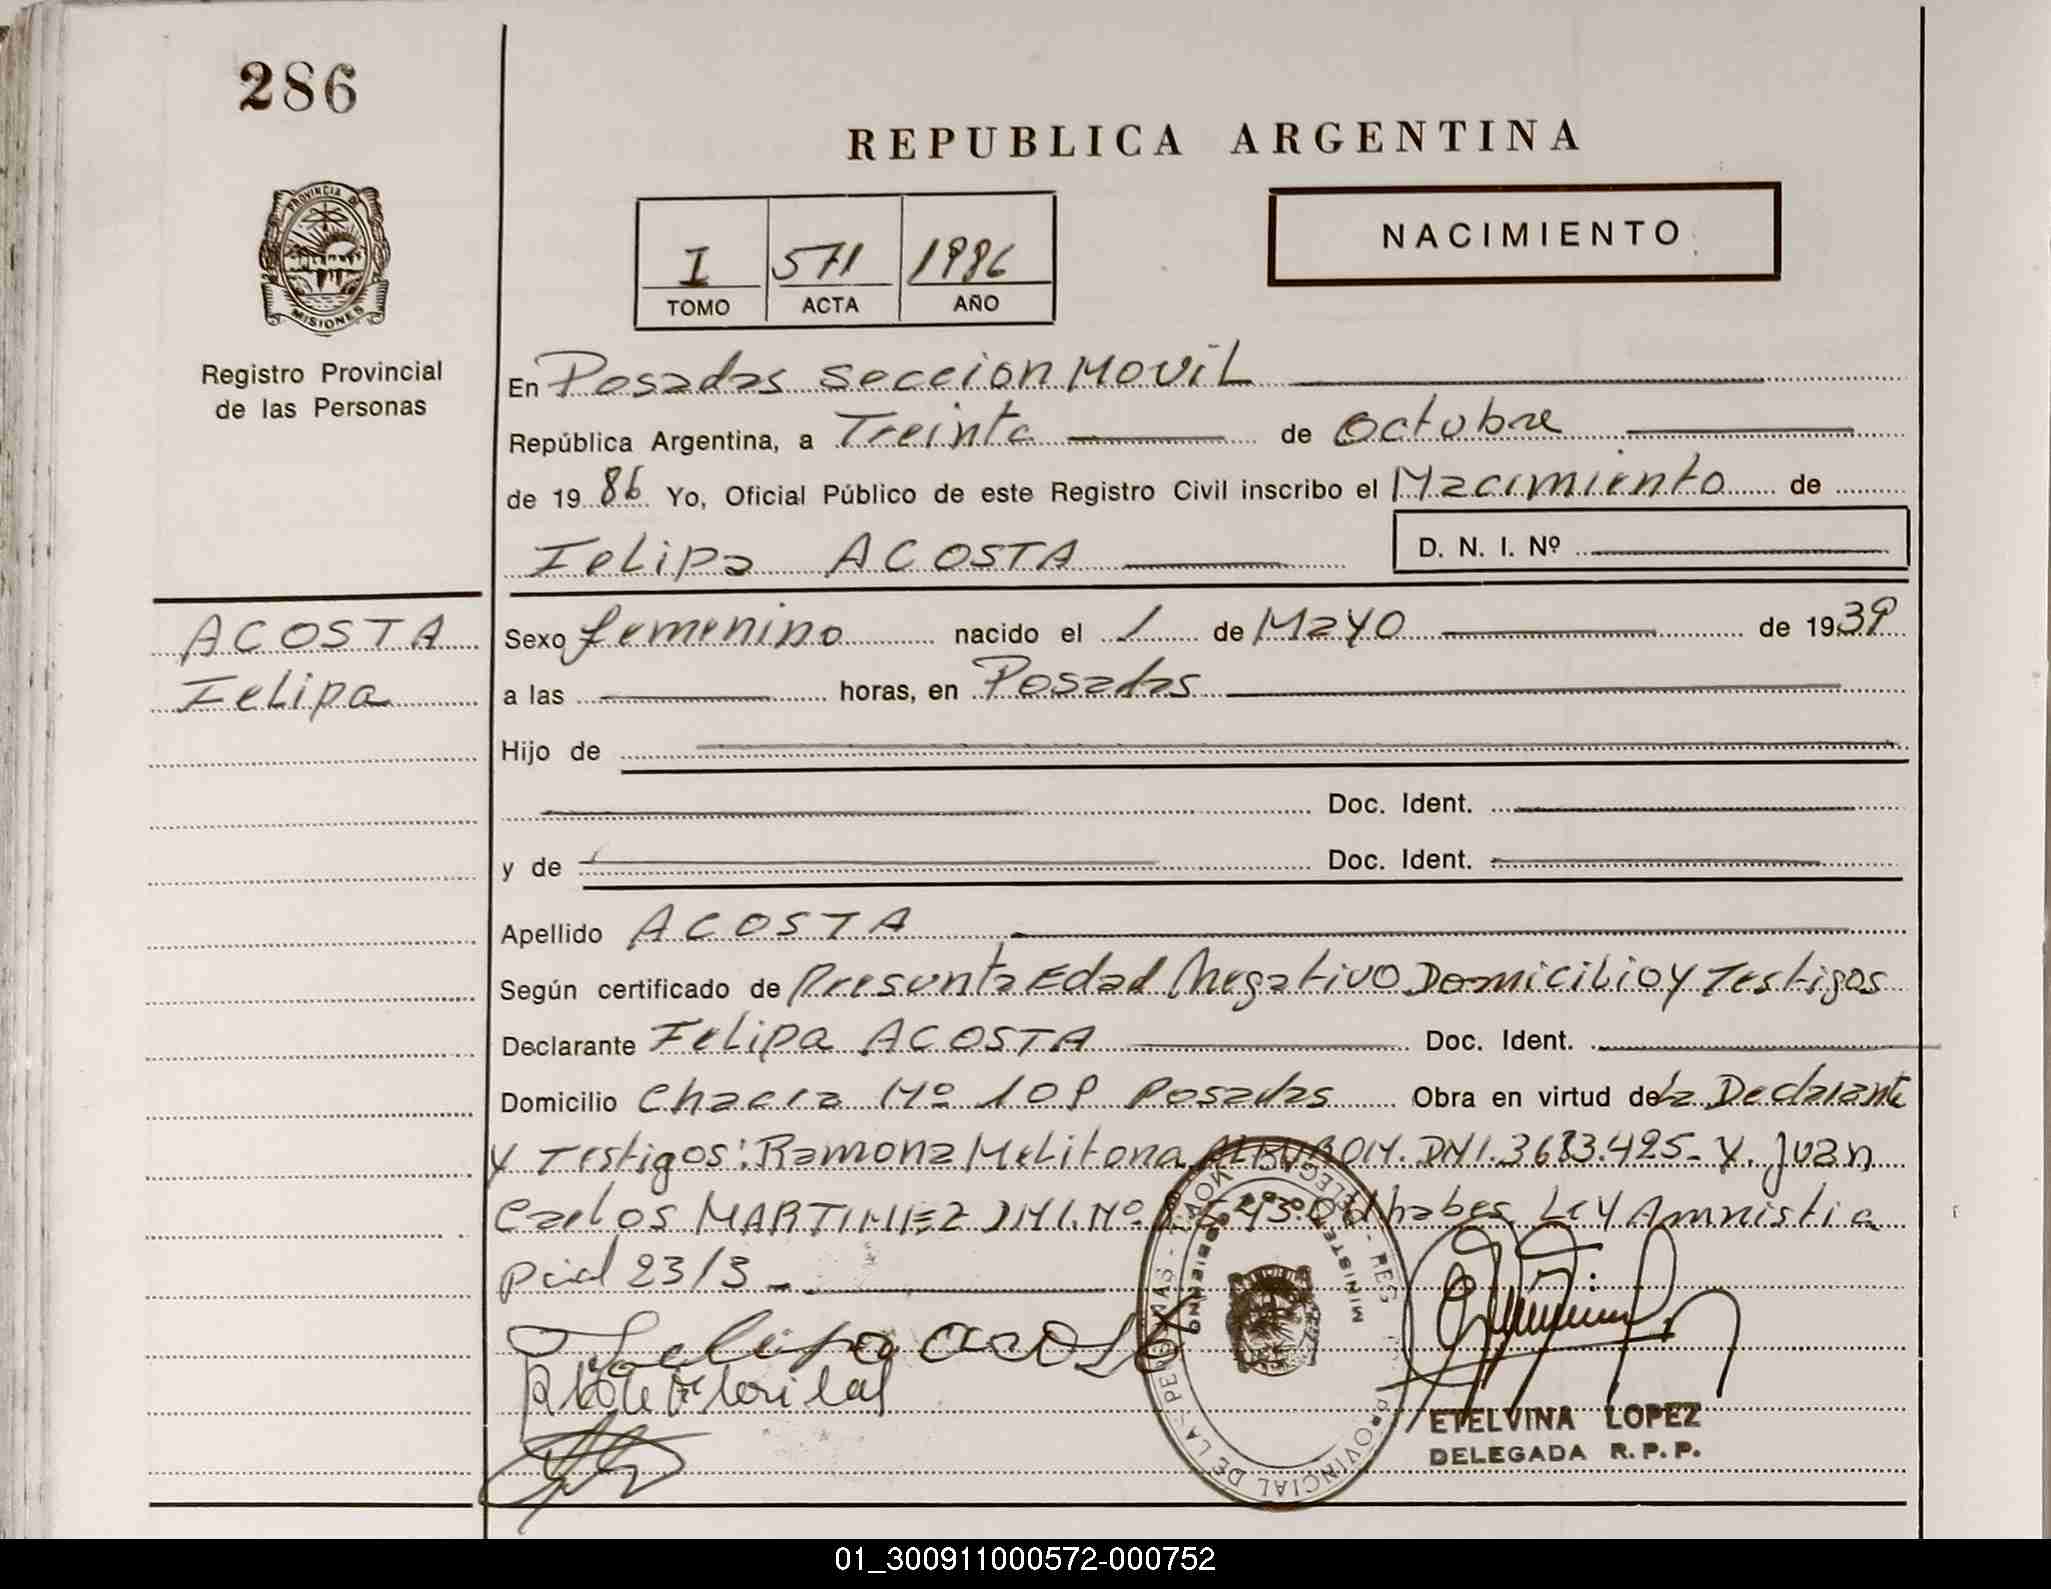 286
REPUBLICA ARGENTINA
PROVINCIA DE
MISIONES
I 571 1986
TOMO ACTA AÑO
NACIMIENTO
Registro Provincial
de las Personas
En Posadas seccion Movil
República Argentina, a Treinta de Octubre
de 1986 Yo, Oficial Público de este Registro Civil inscribo el Nacimiento de
Felipa ACOSTA D. N. I. Nº
ACOSTA
Felipa
Sexo femenino nacido el 1 de Mayo de 1939
a las horas, en Posadas
Hijo de
Doc. Ident.
y de Doc. Ident.
Apellido ACOSTA
Según certificado de Presunta Edad Negativo Domicilio y Testigos
Declarante Felipa ACOSTA Doc. Ident.
Domicilio Chacra Nº 109 Posadas Obra en virtud de La Declarante
y Testigos: Ramona Melitona DNI. 3683.425- y Juan
Carlos MARTINEZ DNI. Nº Ley Amnistia
23/3-
Felipa acosta
ETELVINA LOPEZ
DELEGADA R.P.P.
01_300911000572-000752